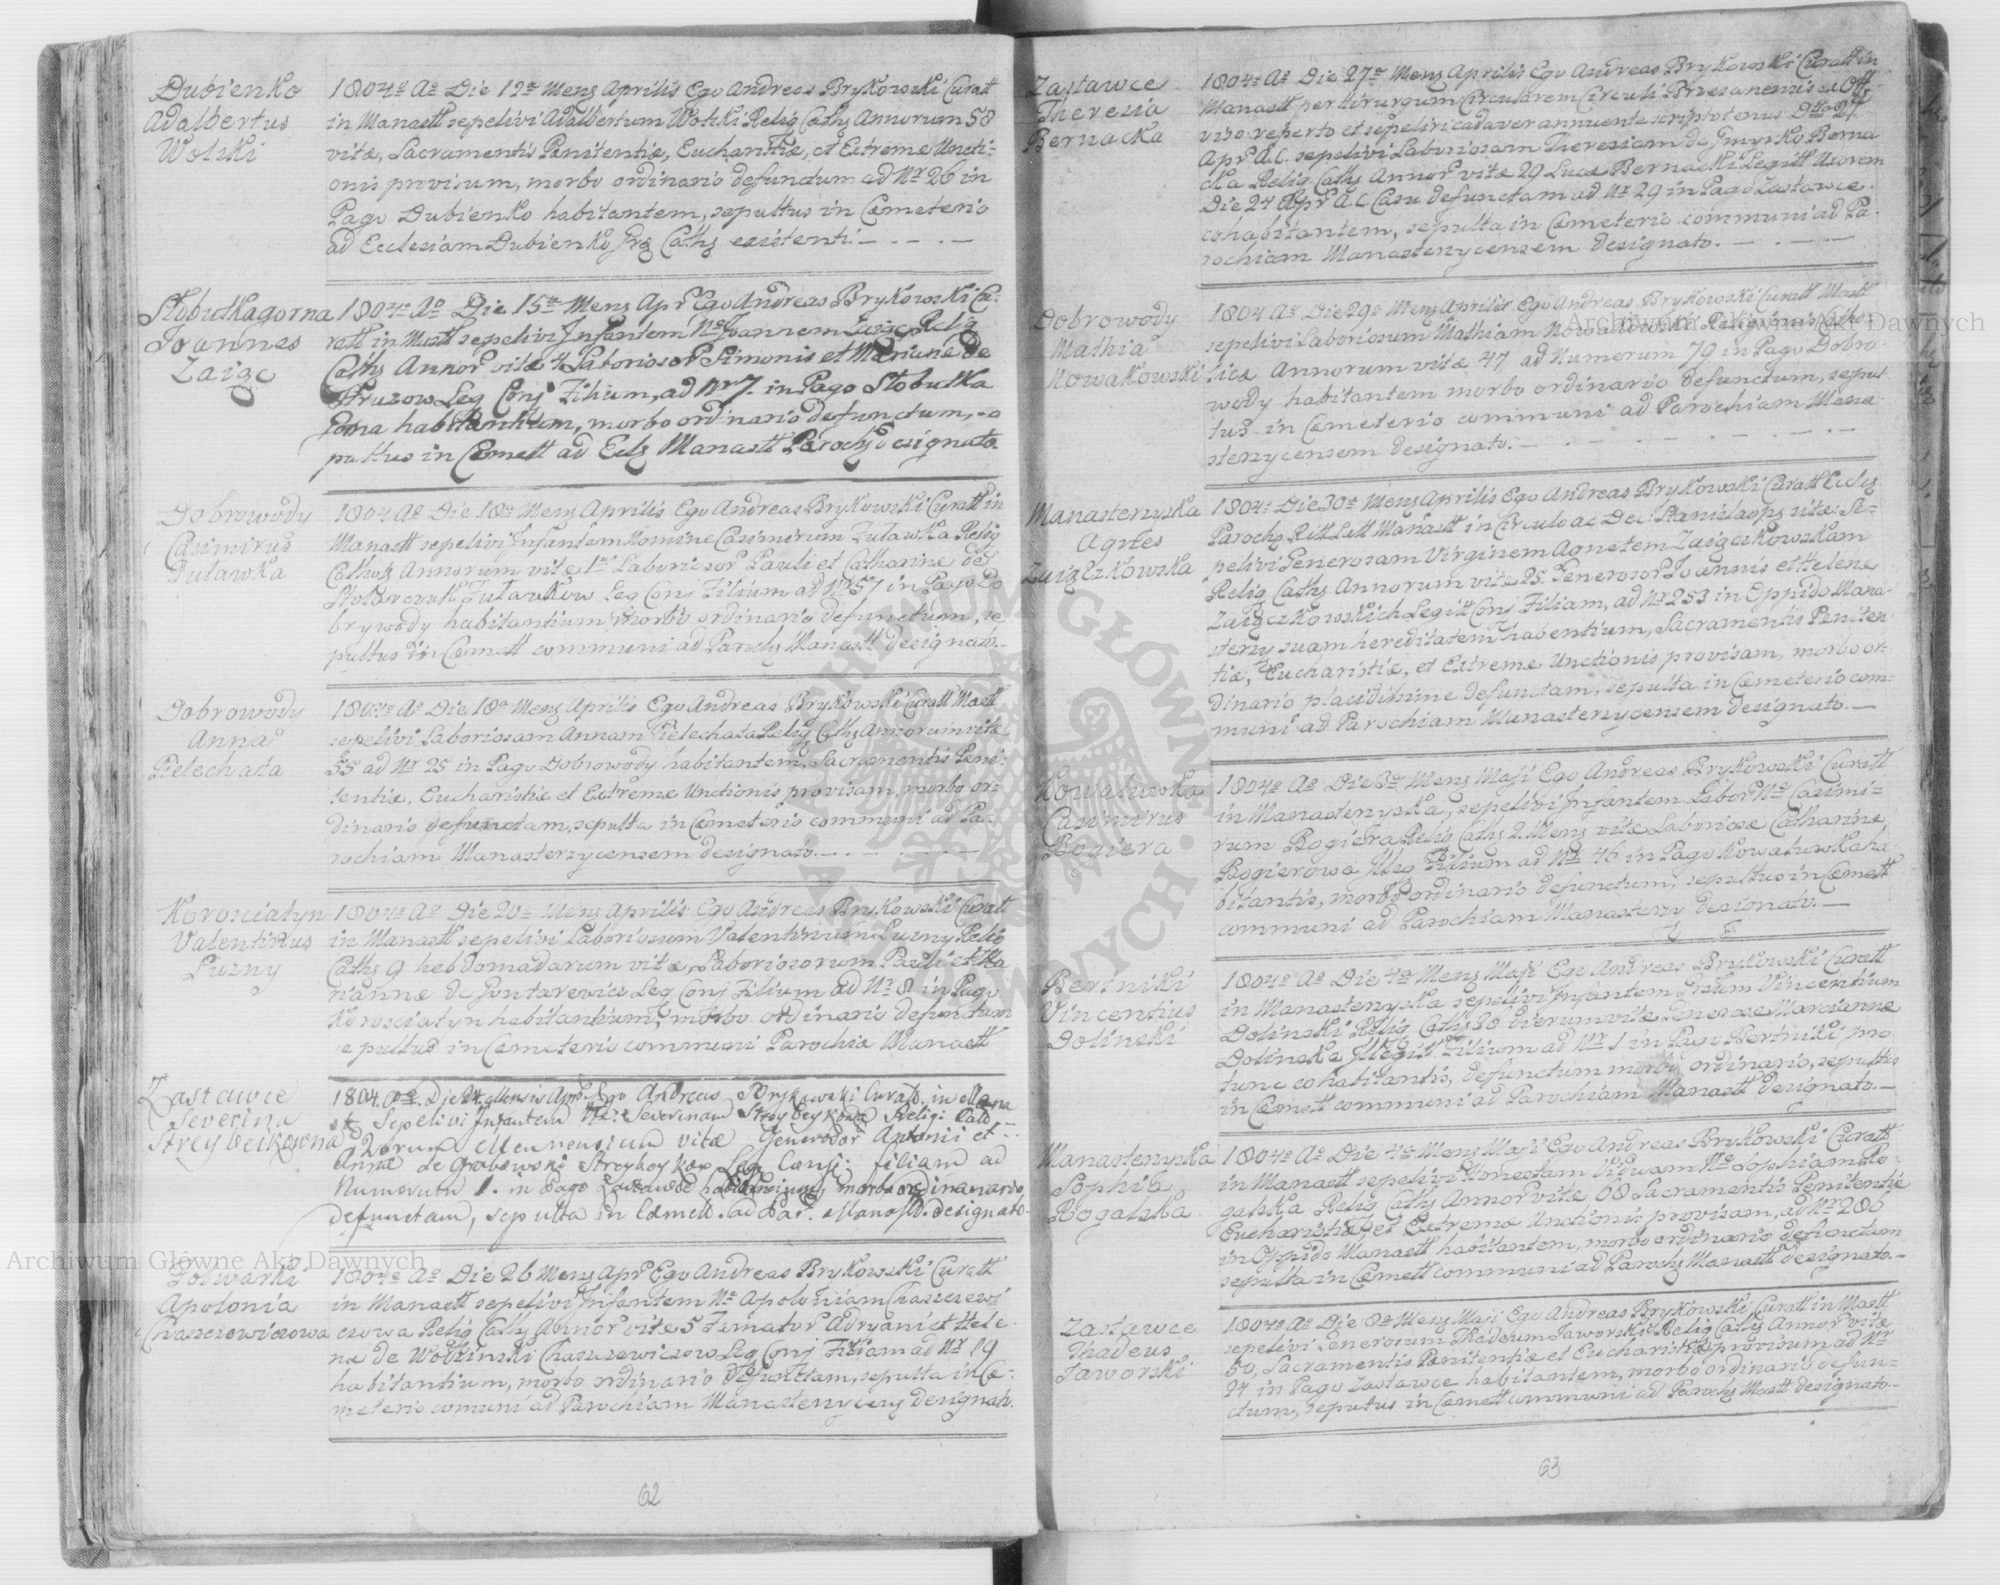 Dubienko
Adalbertus
Wolski
1804º Aº Die 12ª Mens Aprilis Ego Andreas Brykowski Curatt
in Manastt sepelivi Adalbertum Wolski Relig Caths Annorum 58
vitæ, Sacramentis Pænitentiæ, Eucharistiæ, et Extreme Uncti-
onis provisum, morbo ordinario defunctum ad Nr 26 in
Pago Dubienko habitantem, sepultus in Cæmeterio
ad Ecclesiam Dubienko Caths existenti.
Slobutkagorna
Joannes
Zaigc
1804º Aº Die 15ta Mens Apr Ego Andreas Brykowski Cu-
ratt in Mastt sepelivi Infantem Ne Joannem Relig
Caths Annor vitæ 4 Laboriosor Simonis et Marianæ de
Leg Conj Filium, ad Nr 7. in Pago Slobutka
Gorna habitantium, morbo ordinario defunctum, se
pultus in Cæmett ad Ecls Manastt Parochs designato.
Dobrowody
Casimirus
Dutawka
1804 Aº Die 18ª Mens Aprilis Ego Andreas Brykowski Curatt in
Manastt sepelivi Infantem Nomine Casimirum Relig
Annorum vite Laboriosor Pauli et Catharinæ de
Leg Conj Filium ad Nr 57 in Pago Do
brywody habitantium morbo ordinario defunctum, se
pultus in Cæmett communi ad Parochs Manastt designato.
Dobrowody
Anna
Pielechata
1804º Aº Die 18ª Mens Aprilis Ego Andreas Brykowski Curatt Mastt
sepelivi Laboriosam Annam Pielechata Relig Caths Annorum vitæ
55 ad Nr 25 in Pago Dobrowody habitantem, Sacramentis Peni-
tentiæ, Eucharistiæ et Extreme Unctionis provisam, morbo or-
dinario defunctam, sepulta in Cemeterio communi ad Pa-
rochiam Manasterzycensem designato.
Korosciatyn
Valentinus
Luzny
1804º Aº Die 20ª Mens Aprilis Ego Andreas Brykowski Curatt
in Manastt sepelivi Laboriosum Valentinum Luzny Relig
Caths 9 hebdomadarum vitæ, Laboriosorum Pauli et Ma
riannæ de Gontarewicz Leg Conj Filium ad Nr 8 in Pago
Korosciatyn habitantium, morbo ordinario defunctum
sepultus in Cemeterio communi Parochia Manastt
Zastawce
Severina
Streybeikowna
1804. Aº. Die 24. Mensis Apr. Ego Andreas Brykowski Curatt. in Mana
st. Sepelivi Infantem Severinam Relig: Cath
2 orum Mensium vitæ Generosor Antonii et
Annæ de Grabowski Leg Filiam ad
Numerum 1. in Pago Zastawce habitantium, morbo ordinario
defunctam, sepulta in Cæmett. ad Par. Manastt. designato.
Folwarki
Apolonia
Chaszczewiczowa
1804º Aº Die 26 Mens Apr Ego Andreas Brykowski Curatt
in Manastt sepelivi Infantem Ne Apoloniam Chaszczewi
czowa Relig Caths Annor vitæ 5 Adryani et Hele
na de Wolzinski Chaszczewiczow Leg Conj Filiam ad Nr 19
habitantium, morbo ordinario defunctam, sepulta in Ce-
meterio comuni ad Parochiam Manasterzycens designato.
62
Zastawce
Theresia
Bernacka
1804º Aº Die 27ma Mens Aprilis Ego Andreas Brykowski Curatt in
Manastt per Chirurgum Circularem Circuli Brzezanensis ex Offo
viso reperto et sepeliri cadaver annuente scripto tenus Dtto 27
Apr A.C. sepelivi Laboriosam Theresiam de Berna
cka Relig Caths Annor vitæ 29 Lucæ Bernacki Legitt Uxorem
Die 24 Apr A.C. Casu defunctam ad Nr 29 in Pago Zastawce
cohabitantem, sepulta in Cæmeterio communi ad Pa-
rochiam Manasterzycensem designato.
Dobrowody
Mathia
Nowakowski
1804 Aº Die 29ª Mens Aprilis Ego Andreas Brykowski Curatt Mastt
sepelivi Laboriosum Mathiam Nowakowski Religionis Catho
licæ Annorum vitæ 47 ad Numerum 79 in Pago Dobro
wody habitantem morbo ordinario defunctum, sepul
tus in Cæmeterio communi ad Parochiam Mana
sterzycensem designato.
Manasterzyska
Agnes
Zaigczkowska
1804º Die 30ª Mens Aprilis Ego Andreas Brykowski Curatt Ecls
Parochs Ritt Latt Manastt in Circulo ac Dec: Stanislaops sitæ Se-
pelivi Generosam Virginem Agnetem Zaigczkowskam
Relig Caths Annorum vitæ 25. Generosor Joannis et Helene
Zaigczkowskich Legitt Conj Filiam, ad Nr 253 in Oppido Mana-
sterzy suam hereditatem habentium, Sacramentis Peniten
tiæ, Eucharistiæ, et Extreme Unctionis provisam, morbo or-
dinario placidissime defunctam, sepulta in Cæmeterio com-
muni ad Parochiam Manasterzycensem designato.
Kowalowka
Casimirus
Bogiera
1804º Aº Die 3ª Mens Maji Ego Andreas Brykowski Curatt
in Manasterzyska, sepelivi Infantem Labor Ne Casimi-
rum Bogiera Relig Caths 2 Mens vitæ Laboriosæ Catharinæ
Bogierowa Illeg Filium ad Nr 46 in Pago Kowalowka ha
bitantis, morbo ordinario defunctum, sepultus in Cemett
communi ad Parochiam Manasterzy designato.
Bertniki
Vincentius
Dolinski
1804º Aº Die 4ta Mens Maji Ego Andreas Brykowski Curatt
in Manasterzyska sepelivi Infantem Vincentium
Dolinski Relig Caths 26 Dierum vitæ Generosæ Marciannæ
Dolinska Illegitt Filium ad Nr 1 in Pago Bertniki pro
tunc cohabitantis, defunctum morbo ordinario, sepultus
in Cæmett communi ad Parochiam Manastt designato.
Manasterzyska
Sophia
Rogalska
1804º Aº Die 4ta Mens Maji Ego Andreas Brykowski Curatt
in Manastt sepelivi Honestam Viduam Ne Sophiam Ro
galska Relig Caths Annor vitæ 68 Sacramentis Penitentiæ
Eucharistiæ, et Extremæ Unctionis provisam, ad Nr 206
in Oppido Manastt habitantem, morbo ordinario defunctam
sepulta in Cæmett communi ad Parochs Manastt designato.
Zastawce
Thadeus
Jaworski
1804º Aº Die 8ª Mens Maji Ego Andreas Brykowski Curatt in Mastt
sepelivi Generosum Thadeum Jaworski Relig Caths Annor vitæ
50, Sacramentis Pænitentiæ et Eucharistiæ provisum ad Nr
24 in Pago Zastawce habitantem, morbo ordinario defun-
ctum, sepultus in Cæmett communi ad Parochs Mastt designato.
63
Archiwum Główne Akt Dawnych
Archiwum Główne Akt Dawnych